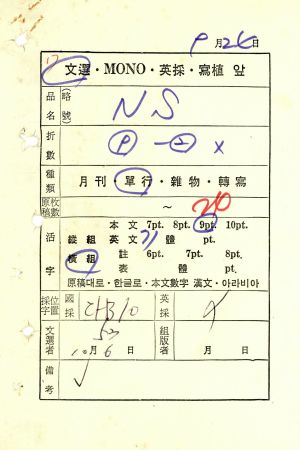 9月26日
文選・MONO・英採・寫植 앞
品名 (略號) NS
折數 P -2 x
種類 月刊・單行・雜物・轉寫
原稿枚數 ~ 20
活字 本文 7pt. 8pt. 9pt. 10pt.
縱組 英文 體 pt.
橫組 註 6pt. 7pt. 8pt.
表 體 pt.
原稿대로・한글로・本文數字 漢文・아라비아
採字位置 國採 英採
文選者 10月6日 組版者 月 日
備考